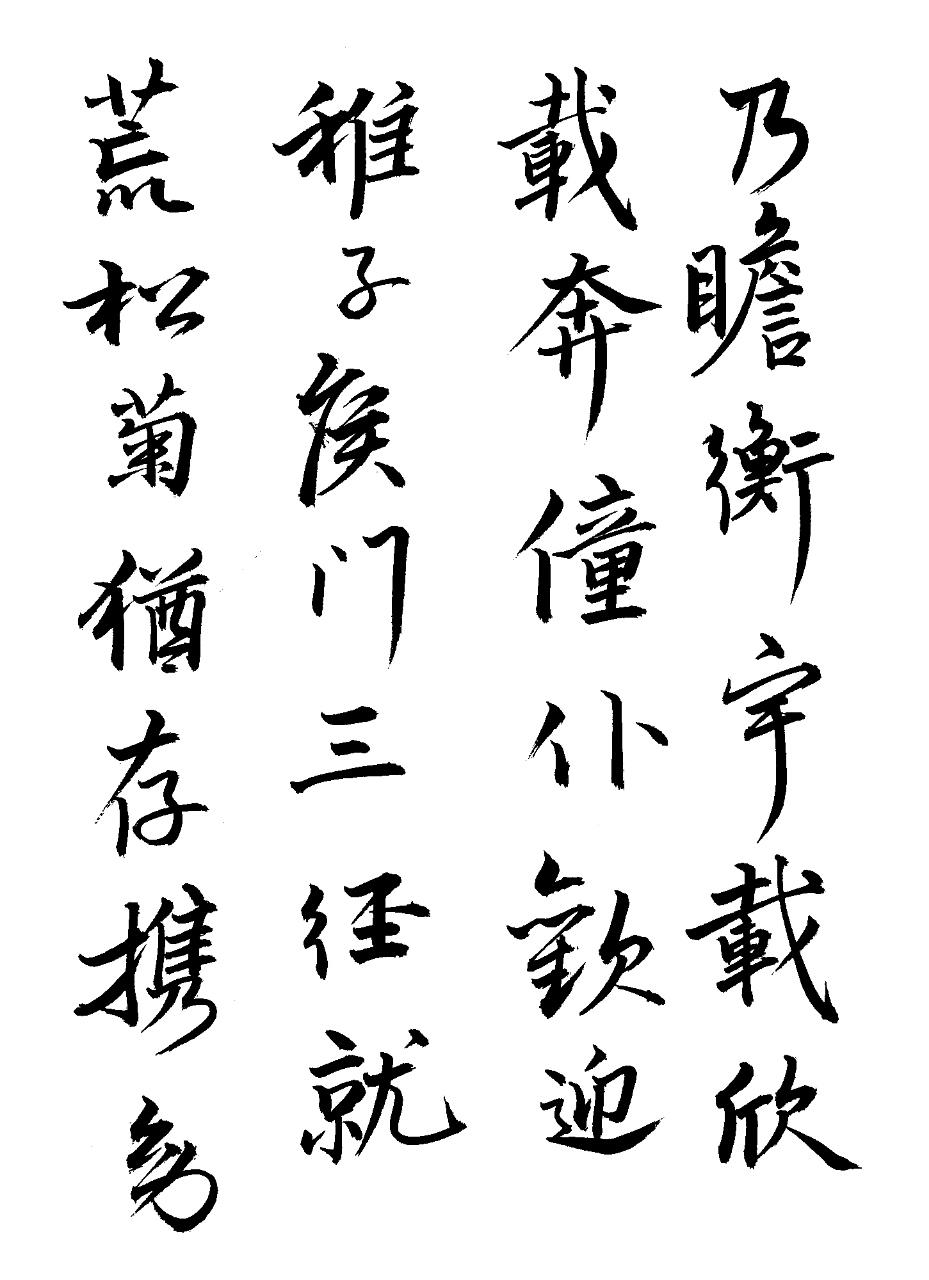 乃瞻衡宇載欣
載奔僮仆歡迎
稚子矦门三径就
荒松菊猶存携幼